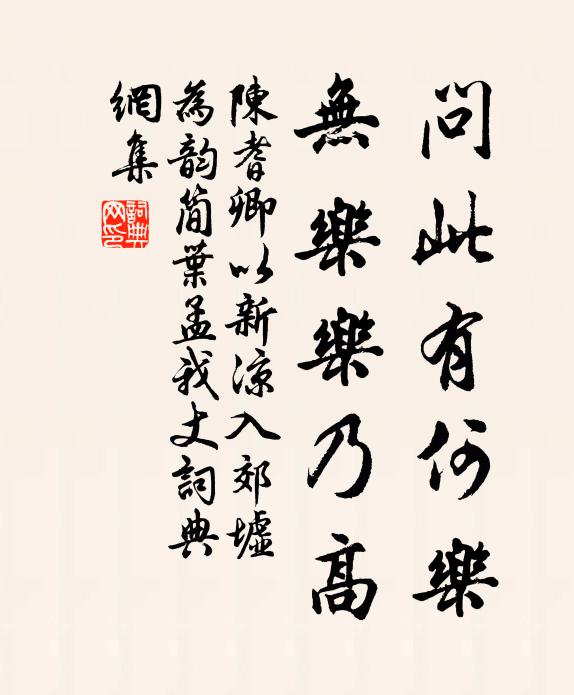 問此有何樂
無樂樂乃高
陳耆卿以新涼入郊墟
為韵簡葉孟我丈詞典
網集
詞典網印